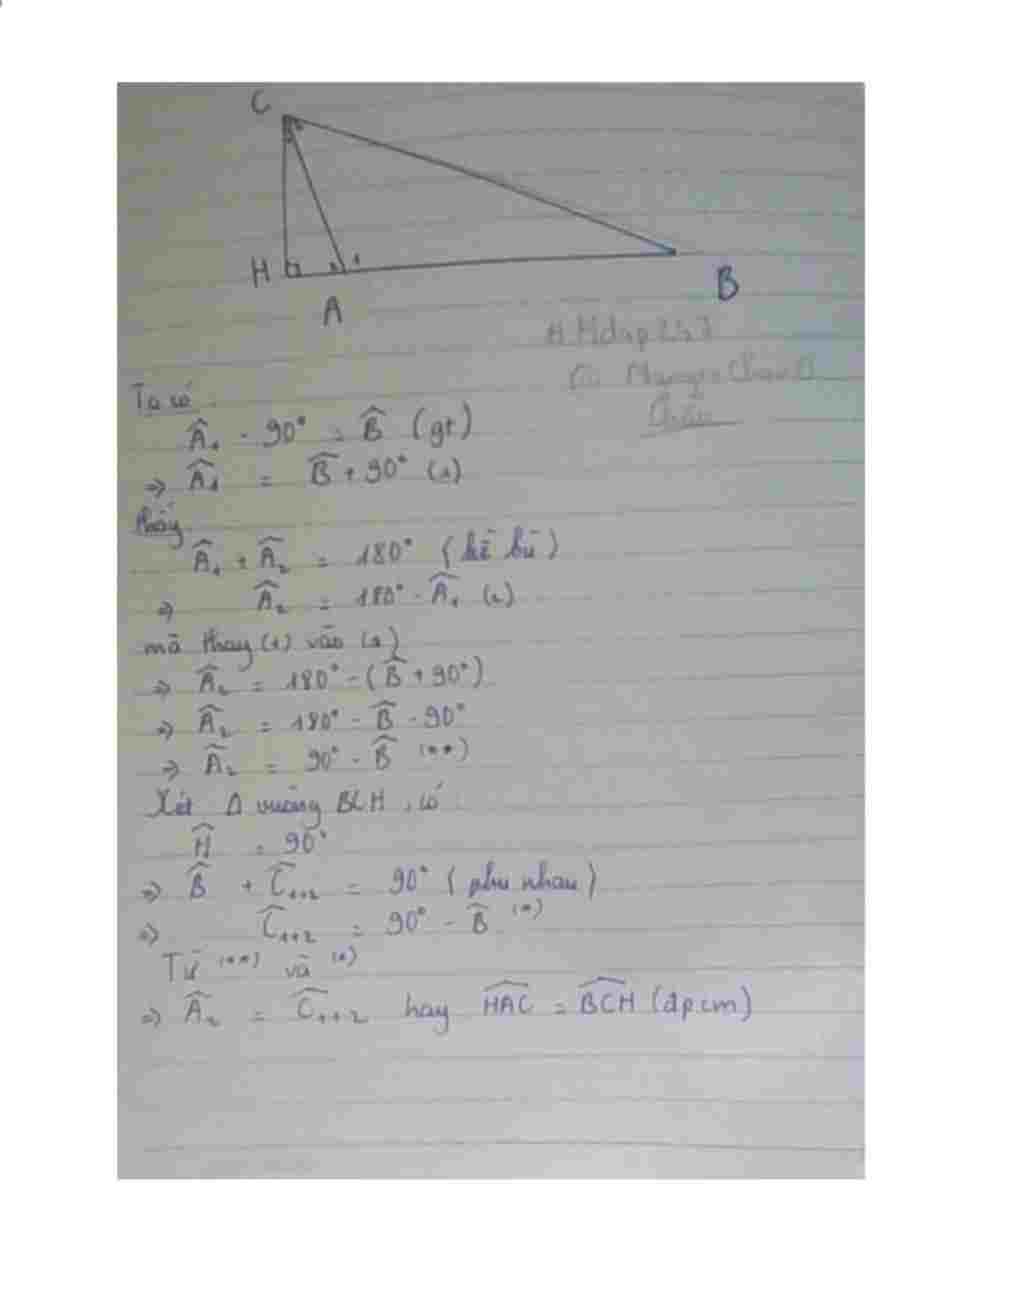 C
H
A
1
B
Ta có :
Â₁ - 90° = B̂ (gt)
⇒ Â₁ = B̂ + 90° (1)
thấy
Â₁ + Â₂ = 180° (kề bù)
⇒ Â₂ = 180° - Â₁ (2)
mà thay (1) vào (2)
⇒ Â₂ = 180° - (B̂ + 90°)
⇒ Â₂ = 180° - B̂ - 90°
⇒ Â₂ = 90° - B̂ (**)
Xét Δ vuông BCH, có
Ĥ = 90°
⇒ B̂ + Ĉ₁₊₂ = 90° (phụ nhau)
⇒ Ĉ₁₊₂ = 90° - B̂ (*)
Từ (**) và (*)
⇒ Â₂ = Ĉ₁₊₂ hay HAC = BCH (đpcm)